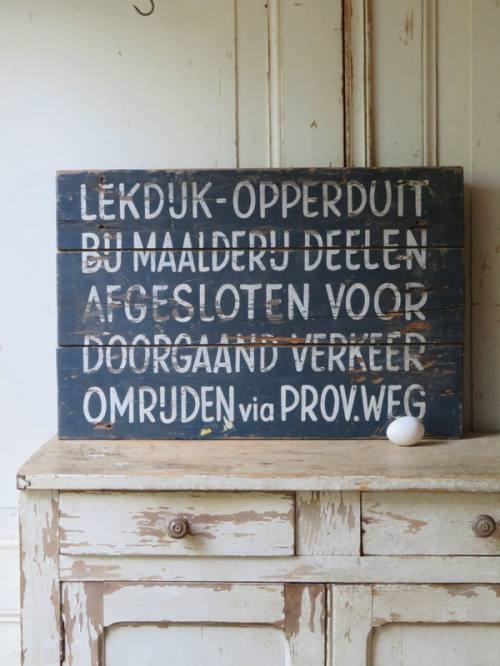 LEKDIJK-OPPERDUIT
BIJ MAALDERIJ DEELEN
AFGESLOTEN VOOR
DOORGAAND VERKEER
OMRIJDEN via PROV.WEG